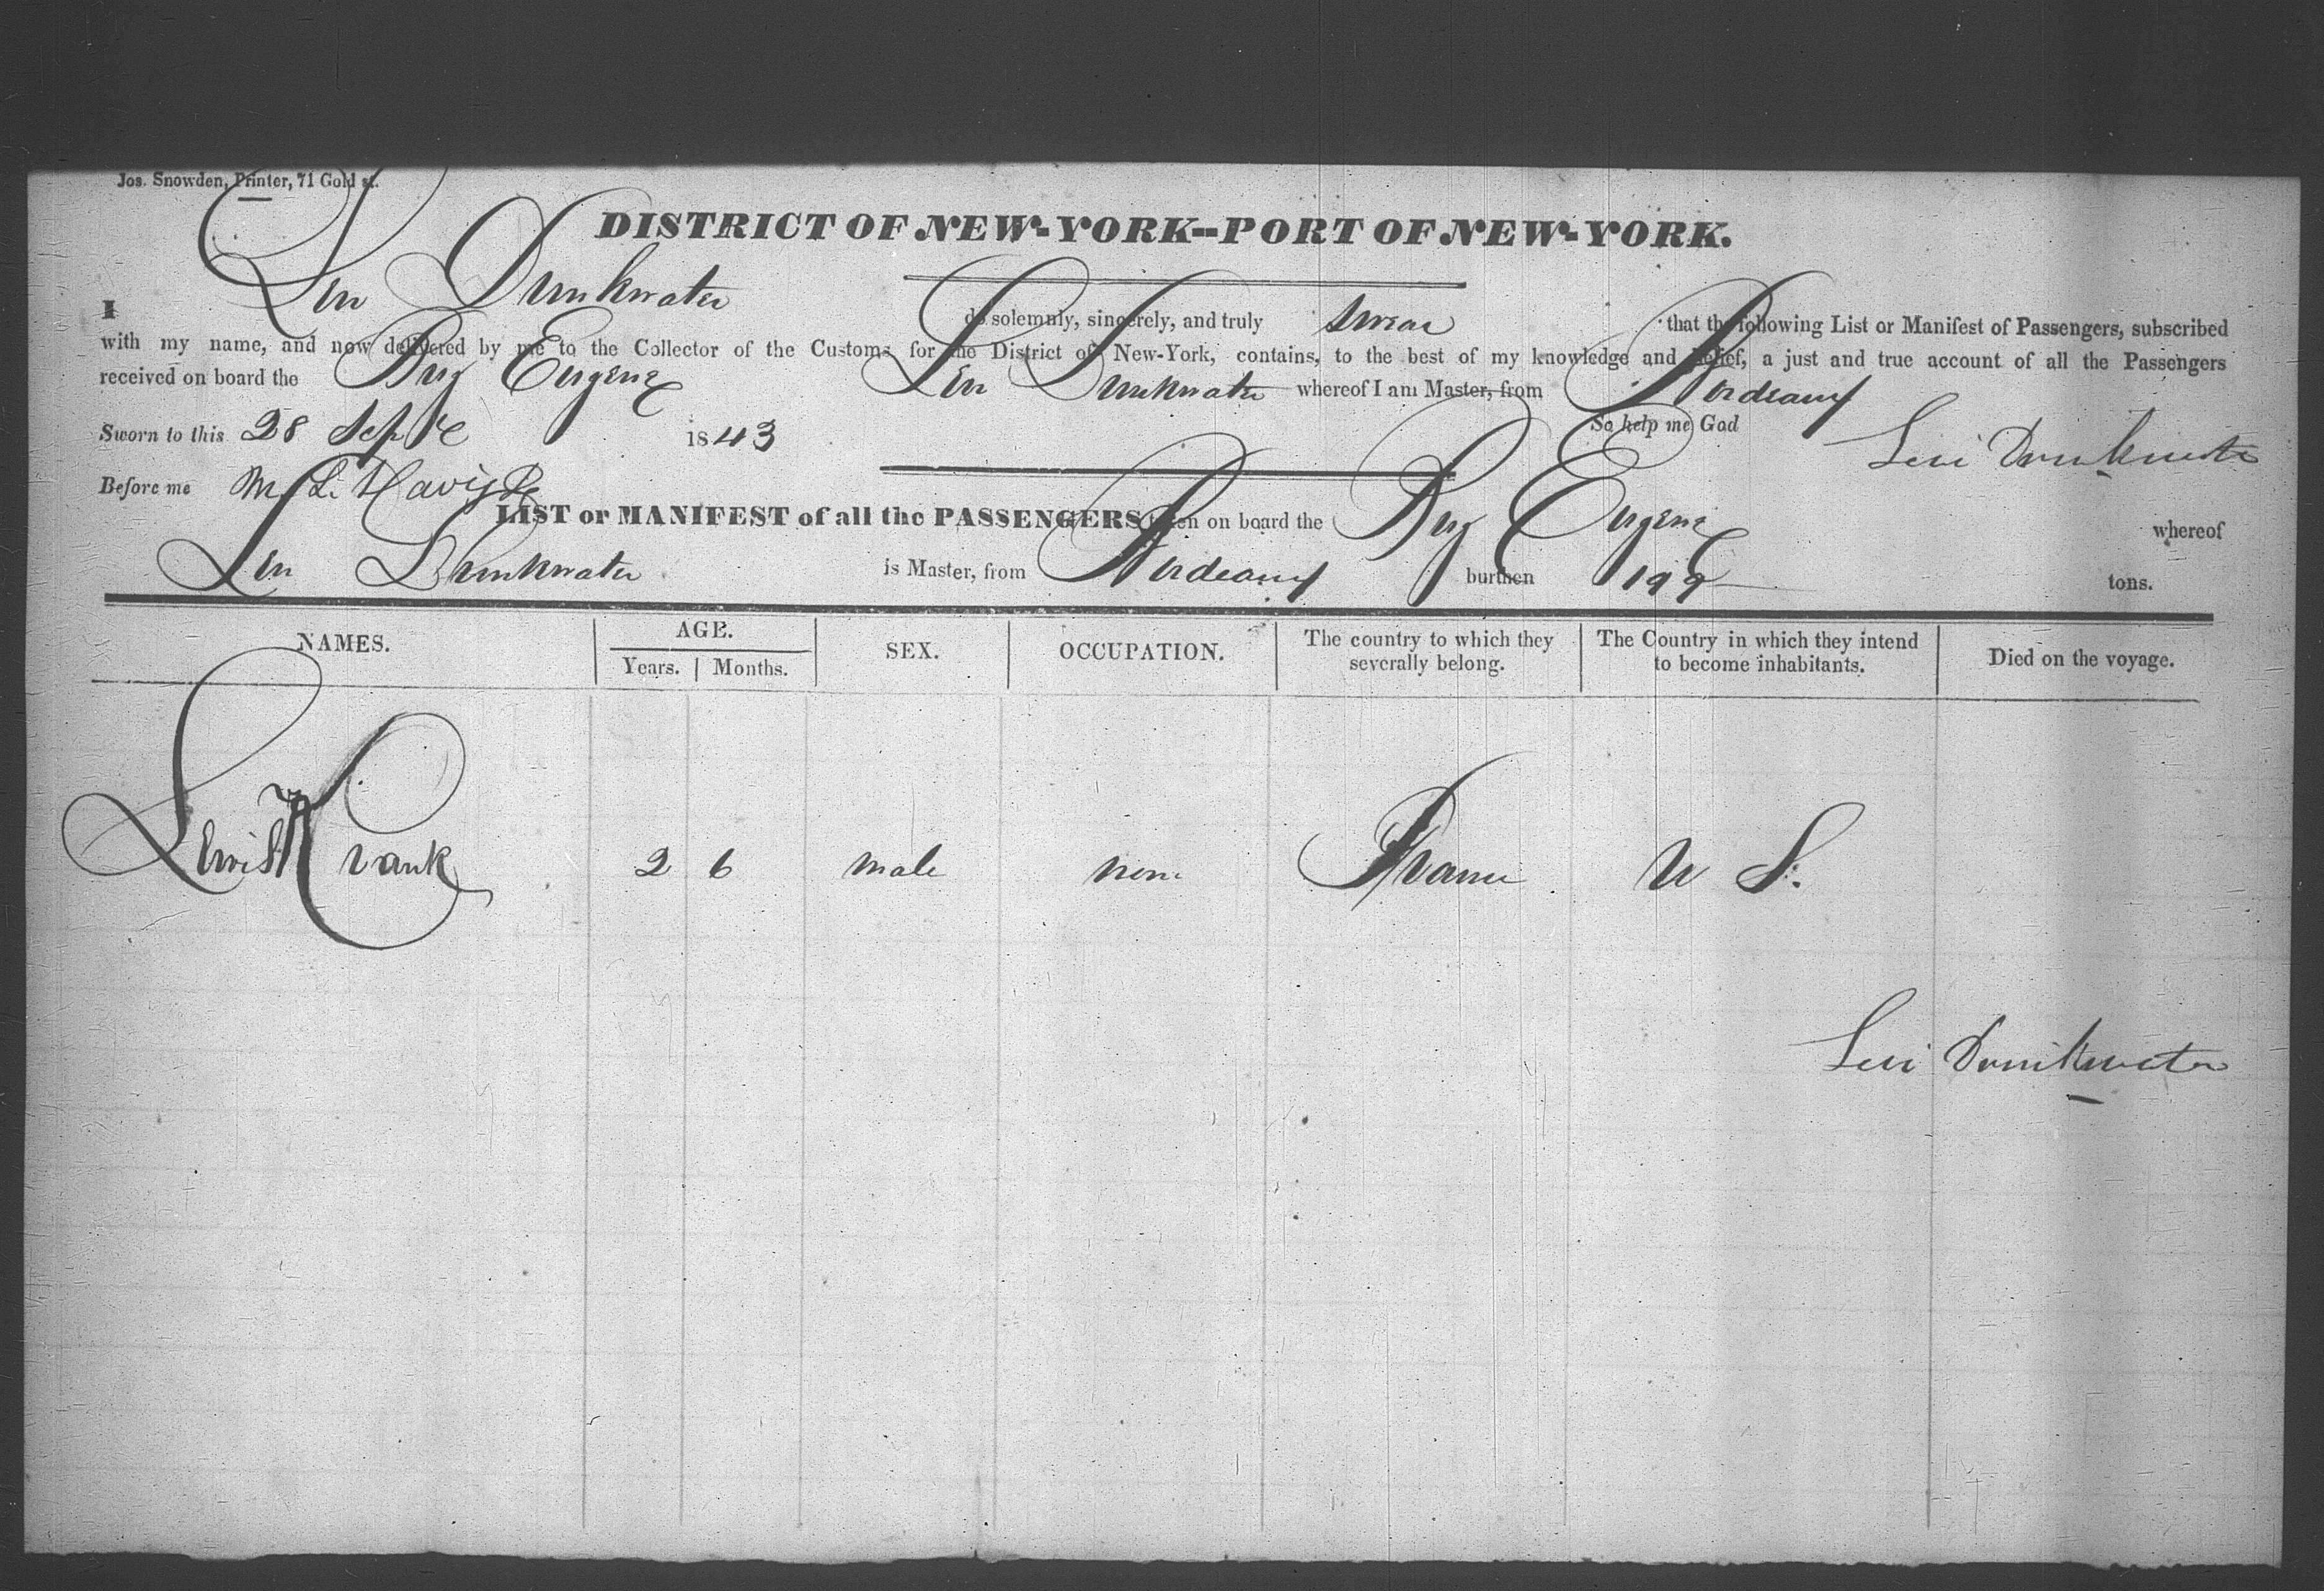 Jos. Snowden, Printer, 71 Gold st.
DISTRICT OF NEW-YORK--PORT OF NEW-YORK.
I Levi Drinkwater do solemnly, sincerely, and truly swear that the following List or Manifest of Passengers, subscribed
with my name, and now delivered by me to the Collector of the Customs for the District of New-York, contains, to the best of my knowledge and belief, a just and true account of all the Passengers
received on board the Brig Eugene Levi Drinkwater whereof I am Master, from Bordeaux
Sworn to this 28 Sept 1843 So help me God Levi Drinkwater
Before me
LIST or MANIFEST of all the PASSENGERS taken on board the Brig Eugene whereof
Levi Drinkwater is Master, from Bordeaux burthen 199 tons.
NAMES. AGE. SEX. OCCUPATION. The country to which they severally belong. The Country in which they intend to become inhabitants. Died on the voyage.
Years. Months.
Lewis 2 6 male none France U S.
Levi Drinkwater